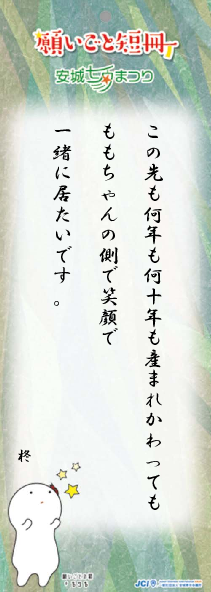 願いごと短冊
安城七夕まつり
この先も何年も何十年も産まれかわっても
ももちゃんの側で笑顔で
一緒に居たいです。
柊
JCI